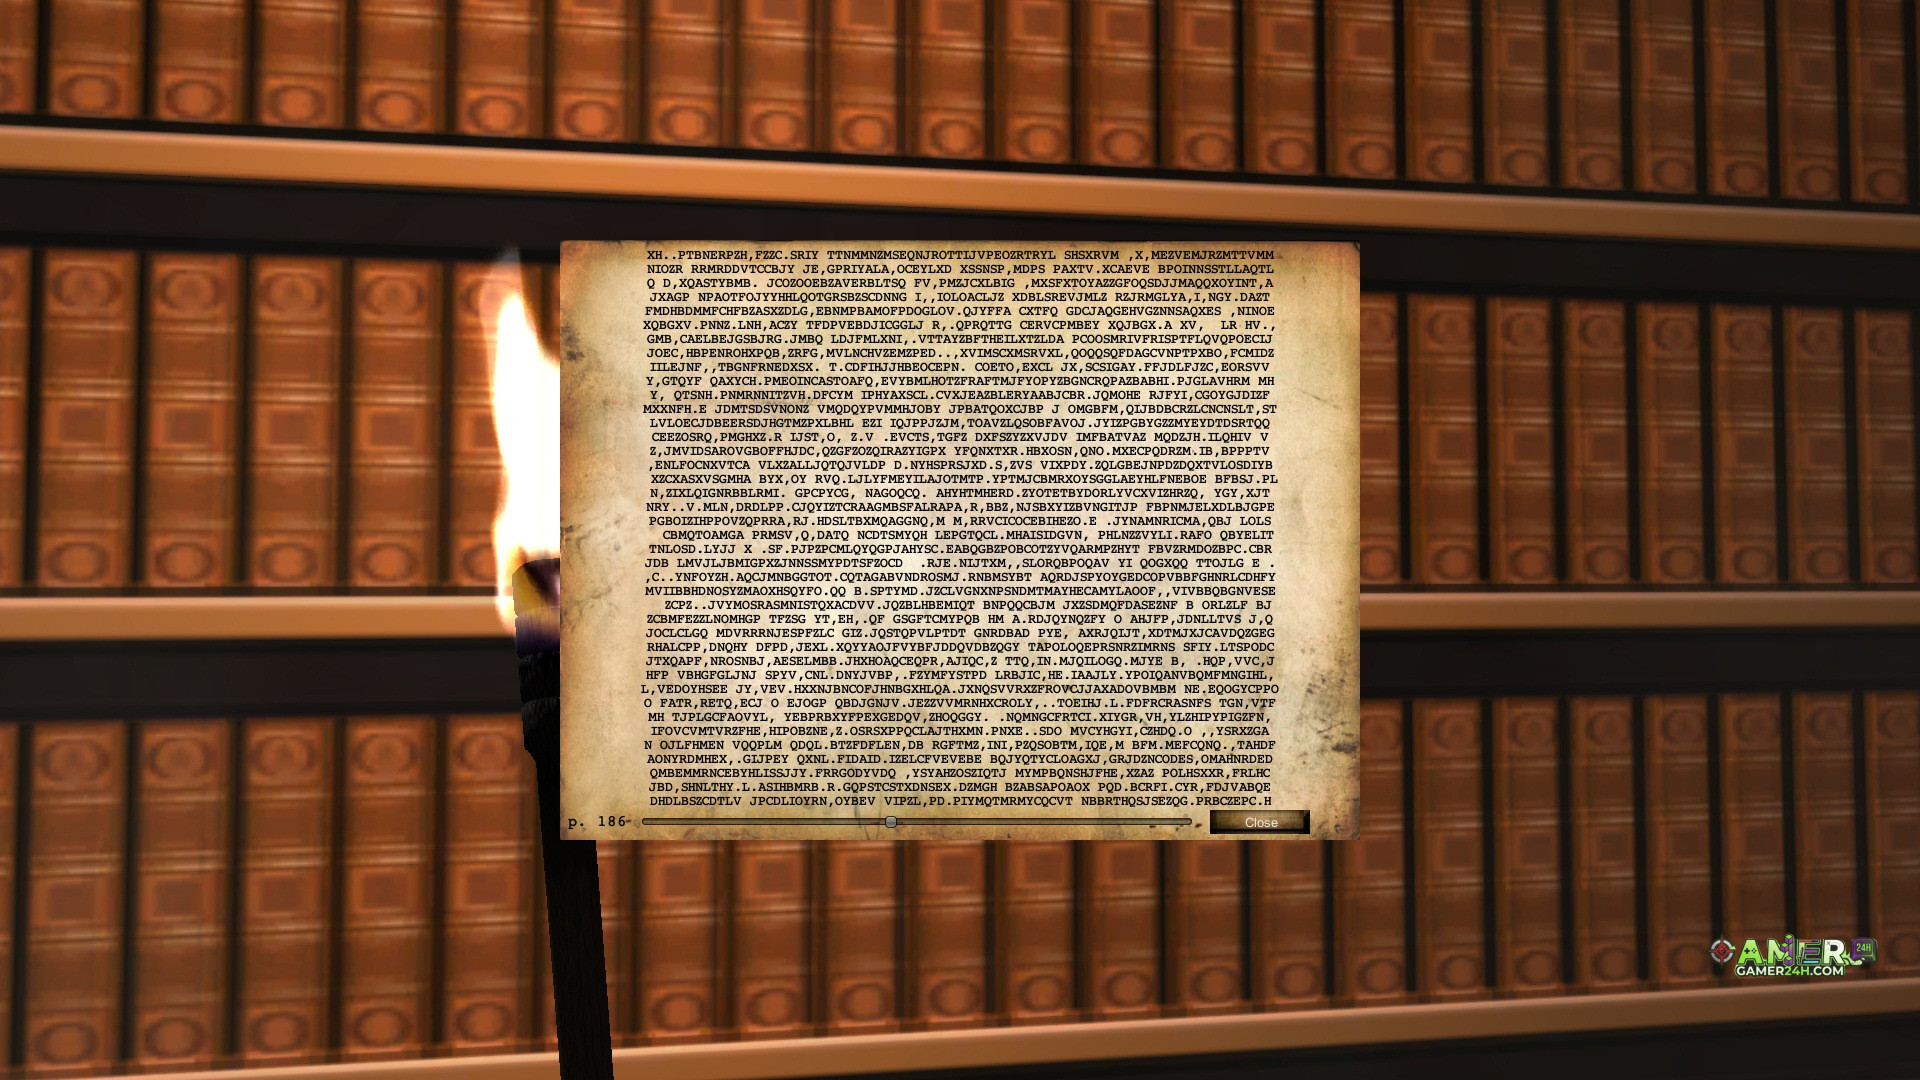 XH..PTBNERPZH,FZZC.SRIY TTNMMNZMSEQNJROTTIJVPEOZRTRYL SHSXRVM ,X,MEZVEMJRZMTTVMM
NIOZR RRMRDDVTCCBJY JE,GPRIYALA,OCEYLXD XSSNSP,MDPS PAXTV.XCAEVE BPOINNSSTLLAQTL
Q D,XQASTYBMB. JCOZOOEBZAVERBLTSQ FV,PMZJCXLBIG ,MXSFXTOYAZZGFOQSDJJMAQQXOYINT,A
JXAGP NPAOTFOJYYHHLQOTGRSBZSCDNNG I,,IOLOACLJZ XDBLSREVJMLZ RZJRMGLYA,I,NGY.DAZT
FMDHBDMMFCHFBZASXZDLG,EBNMPBAMOFPDOGLOV.QJYFFA CXTFQ GDCJAQGEHVGZNNSAQXES ,NINOE
XQBGXV.PNNZ.LNH,ACZY TFDPVEBDJICGGLJ R,.QPRQTTG CERVCPMBEY XQJBGX.A XV,  LR HV.,
GMB,CAELBEJGSBJRG.JMBQ LDJFMLXNI,.VTTAYZBFTHEILXTZLDA PCOOSMRIVFRISPTFLQVQPOECIJ
JOEC,HBPENROHXPQB,ZRFG,MVLNCHVZEMZPED..,XVIMSCXMSRVXL,QOQQSQFDAGCVNPTPXBO,FCMIDZ
IILEJNF,,TBGNFRNEDXSX. T.CDFIHJJHBEOCEPN. COETO,EXCL JX,SCSIGAY.FFJDLFJZC,EORSVV
Y,GTQYF QAXYCH.PMEOINCASTOAFQ,EVYBMLHOTZFRAFTMJFYOPYZBGNCRQPAZBABHI.PJGLAVHRM MH
Y, QTSNH.PNMRNNITZVH.DFCYM IPHYAXSCL.CVXJEAZBLERYAABJCBR.JQMOHE RJFYI,CGOYGJDIZF
MXXNFH.E JDMTSDSVNONZ VMQDQYPVMMHJOBY JPBATQOXCJBP J OMGBFM,QIJBDBCRZLCNCNSLT,ST
LVLOECJDBEERSDJHGTMZPXLBHL EZI IQJPPJZJM,TOAVZLQSOBFAVOJ.JYIZPGBYGZZMYEYDTDSRTQQ
CEEZOSRQ,PMGHXZ.R IJST,O, Z.V .EVCTS,TGFZ DXFSZYZXVJDV IMFBATVAZ MQDZJH.ILQHIV V
Z,JMVIDSAROVGBOFFHJDC,QZGFZOZQIRAZYIGPX YFQNXTXR.HBXOSN,QNO.MXECPQDRZM.IB,BPPPTV
,ENLFOCNXVTCA VLXZALLJQTQJVLDP D.NYHSPRSJXD.S,ZVS VIXPDY.ZQLGBEJNPDZDQXTVLOSDIYB
XZCXASXVSGMHA BYX,OY RVQ.LJLYFMEYILAJOTMTP.YPTMJCBMRXOYSGGLAEYHLFNEBOE BFBSJ.PL
N,ZIXLQIGNRBBLRMI. GPCPYCG, NAGOQCQ. AHYHTMHERD.ZYOTETBYDORLYVCXVIZHRZQ, YGY,XJT
NRY..V.MLN,DRDLPP.CJQYIZTCRAAGMBSFALRAPA,R,BBZ,NJSBXYIZBVNGITJP FBPNMJELXDLBJGPE
PGBOIZIHPPOVZQPRRA,RJ.HDSLTBXMQAGGNQ,M M,RRVCICOCEBIHEZO.E .JYNAMNRICMA,QBJ LOLS
CBMQTOAMGA PRMSV,Q,DATQ NCDTSMYQH LEPGTQCL.MHAISIDGVN, PHLNZZVYLI.RAFO QBYELIT
TNLOSD.LYJJ X .SF.PJPZPCMLQYQGPJAHYSC.EABQGBZPOBCOTZYVQARMPZHYT FBVZRMDOZBPC.CBR
JDB LMVJLJBMIGPXZJNNSSMYPDTSFZOCD  .RJE.NLJTXM,,SLORQBPOQAV YI QOGXQQ TTOJLG E .
,C..YNFOYZH.AQCJMNBGGTOT.CQTAGABVNDROSMJ.RNBMSYBT AQRDJSPYOYGEDCOPVBBFGHNRLCDHFY
MVIIBBHDNOSYZMAOXHSQYFO.QQ B.SPTYMD.JZCLVGNXNPSNDMTMAYHECAMYLAOOF,,VIVBBQBGNVESE
ZCPZ..JVYMOSRASMNISTQXACDVV.JQZBLHBEMIQT BNPQQCBJM JXZSDMQFDASEZNF B ORLZLF BJ
ZCBMFEZZLNOMHGP TFZSG YT,EH,.QF GSGFTCMYPQB HM A.RDJQYNQZFY O AHJFP,JDNLLTVS J,Q
JOCLCLGQ MDVRRRNJESPFZLC GIZ.JQSTQPVLPTDT GNRDBAD PYE, AXRJQLJT,XDTMJXJCAVDQZGEG
RHALCPP,DNQHY DFPD,JEXL.XQYYAOJFVYBFJDDQVDBZQGY TAPOLOQEPRSNRZIMRNS SFIY.LTSPODC
JTXQAPF,NROSNBJ,AESELMBB.JHXHOAQCEQPR,AJIQC,Z TTQ,IN.MJQILOGQ.MJYE B, .HQP,VVC,J
HFP VBHGFGLJNJ SPYV,CNL.DNYJVBP,.FZYMFYSTPD LRBJIC,HE.IAAJLY.YPOIQANVBQMFMNGIHL,
L,VEDOYHSEE JY,VEV.HXXNJBNCOFJHNBGXHLQA.JXNQSVVRXZFROVCJJAXADOVBMBM NE.EQOGYCPPO
O FATR,RETQ,ECJ O EJOGP QBDJGNJV.JEZZVVMRNHXCROLY,..TOEIHJ.L.FDFRCRASNFS TGN,VTF
MH TJPLGCFAOVYL, YEBPRBXYFPEXGEDQV,ZHOQGGY. .NQMNGCFRTCI.XIYGR,VH,YLZHIPYPIGZFN,
IFOVCVMTVRZFHE,HIPOBZNE,Z.OSRSXPPQCLAJTHXMN.PNXE..SDO MVCYHGYI,CZHDQ.O ,,YSRXZGA
N OJLFHMEN VQQPLM QDQL.BTZFDFLEN,DB RGFTMZ,INI,PZQSOBTM,IQE,M BFM.MEFCQNQ.,TAHDF
AONYRDMHEX,.GIJPEY QXNL.FIDAID.IZELCFVEVEBE BQJYQTYCLOAGXJ,GRJDZNCODES,OMAHNRDED
QMBEMMRNCEBYHLISSJJY.FRRGODYVDQ ,YSYAHZOSZIQTJ MYMPBQNSHJFHE,XZAZ POLHSXXR,FRLHC
JBD,SHNLTHY.L.ASIHBMRB.R.GQPSTCSTXDNSEX.DZMGH BZABSAPOAOX PQD.BCRFI.CYR,FDJVABQE
DHDLBSZCDTLV JPCDLIOYRN,OYBEV VIPZL,PD.PIYMQTMRMYCQCVT NBBRTHQSJSEZQG.PRBCZEPC.H
p. 186
Close
GAMER 24H
GAMER24H.COM